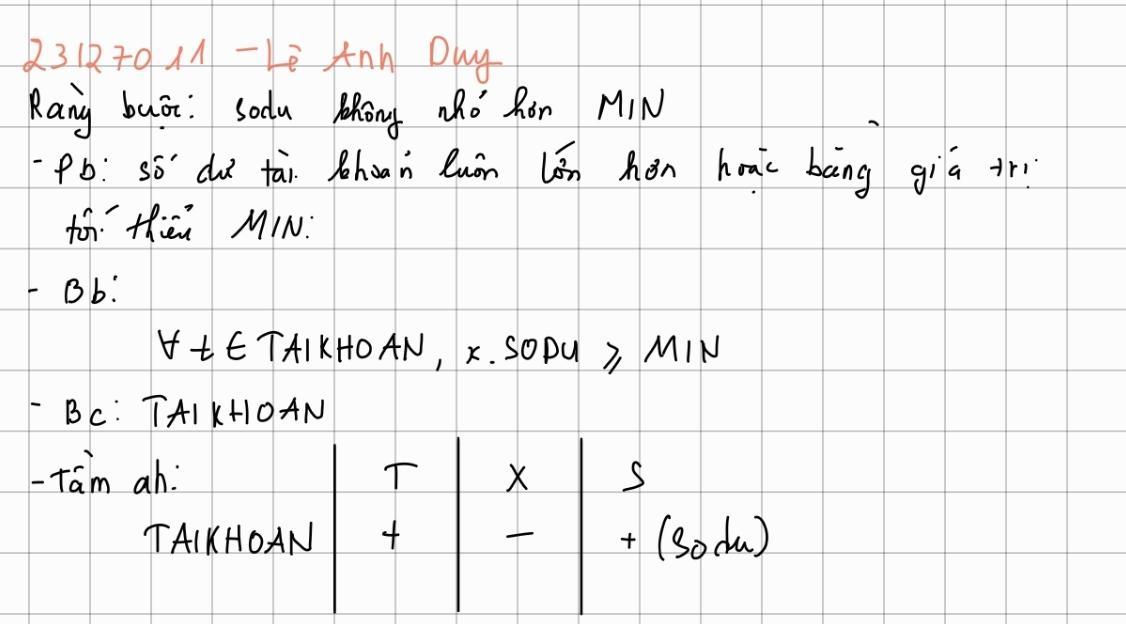 23127011 - Lê Anh Duy
Ràng buộc: sodu không nhỏ hơn MIN
- Pb: số dư tài khoản luôn lớn hơn hoặc bằng giá trị
tối thiểu MIN:
- Bb:
∀ t ∈ TAIKHOAN, x.SODU ⩾ MIN
- Bc: TAIKHOAN
- Tầm ah: T X S
TAIKHOAN + - + (sodu)